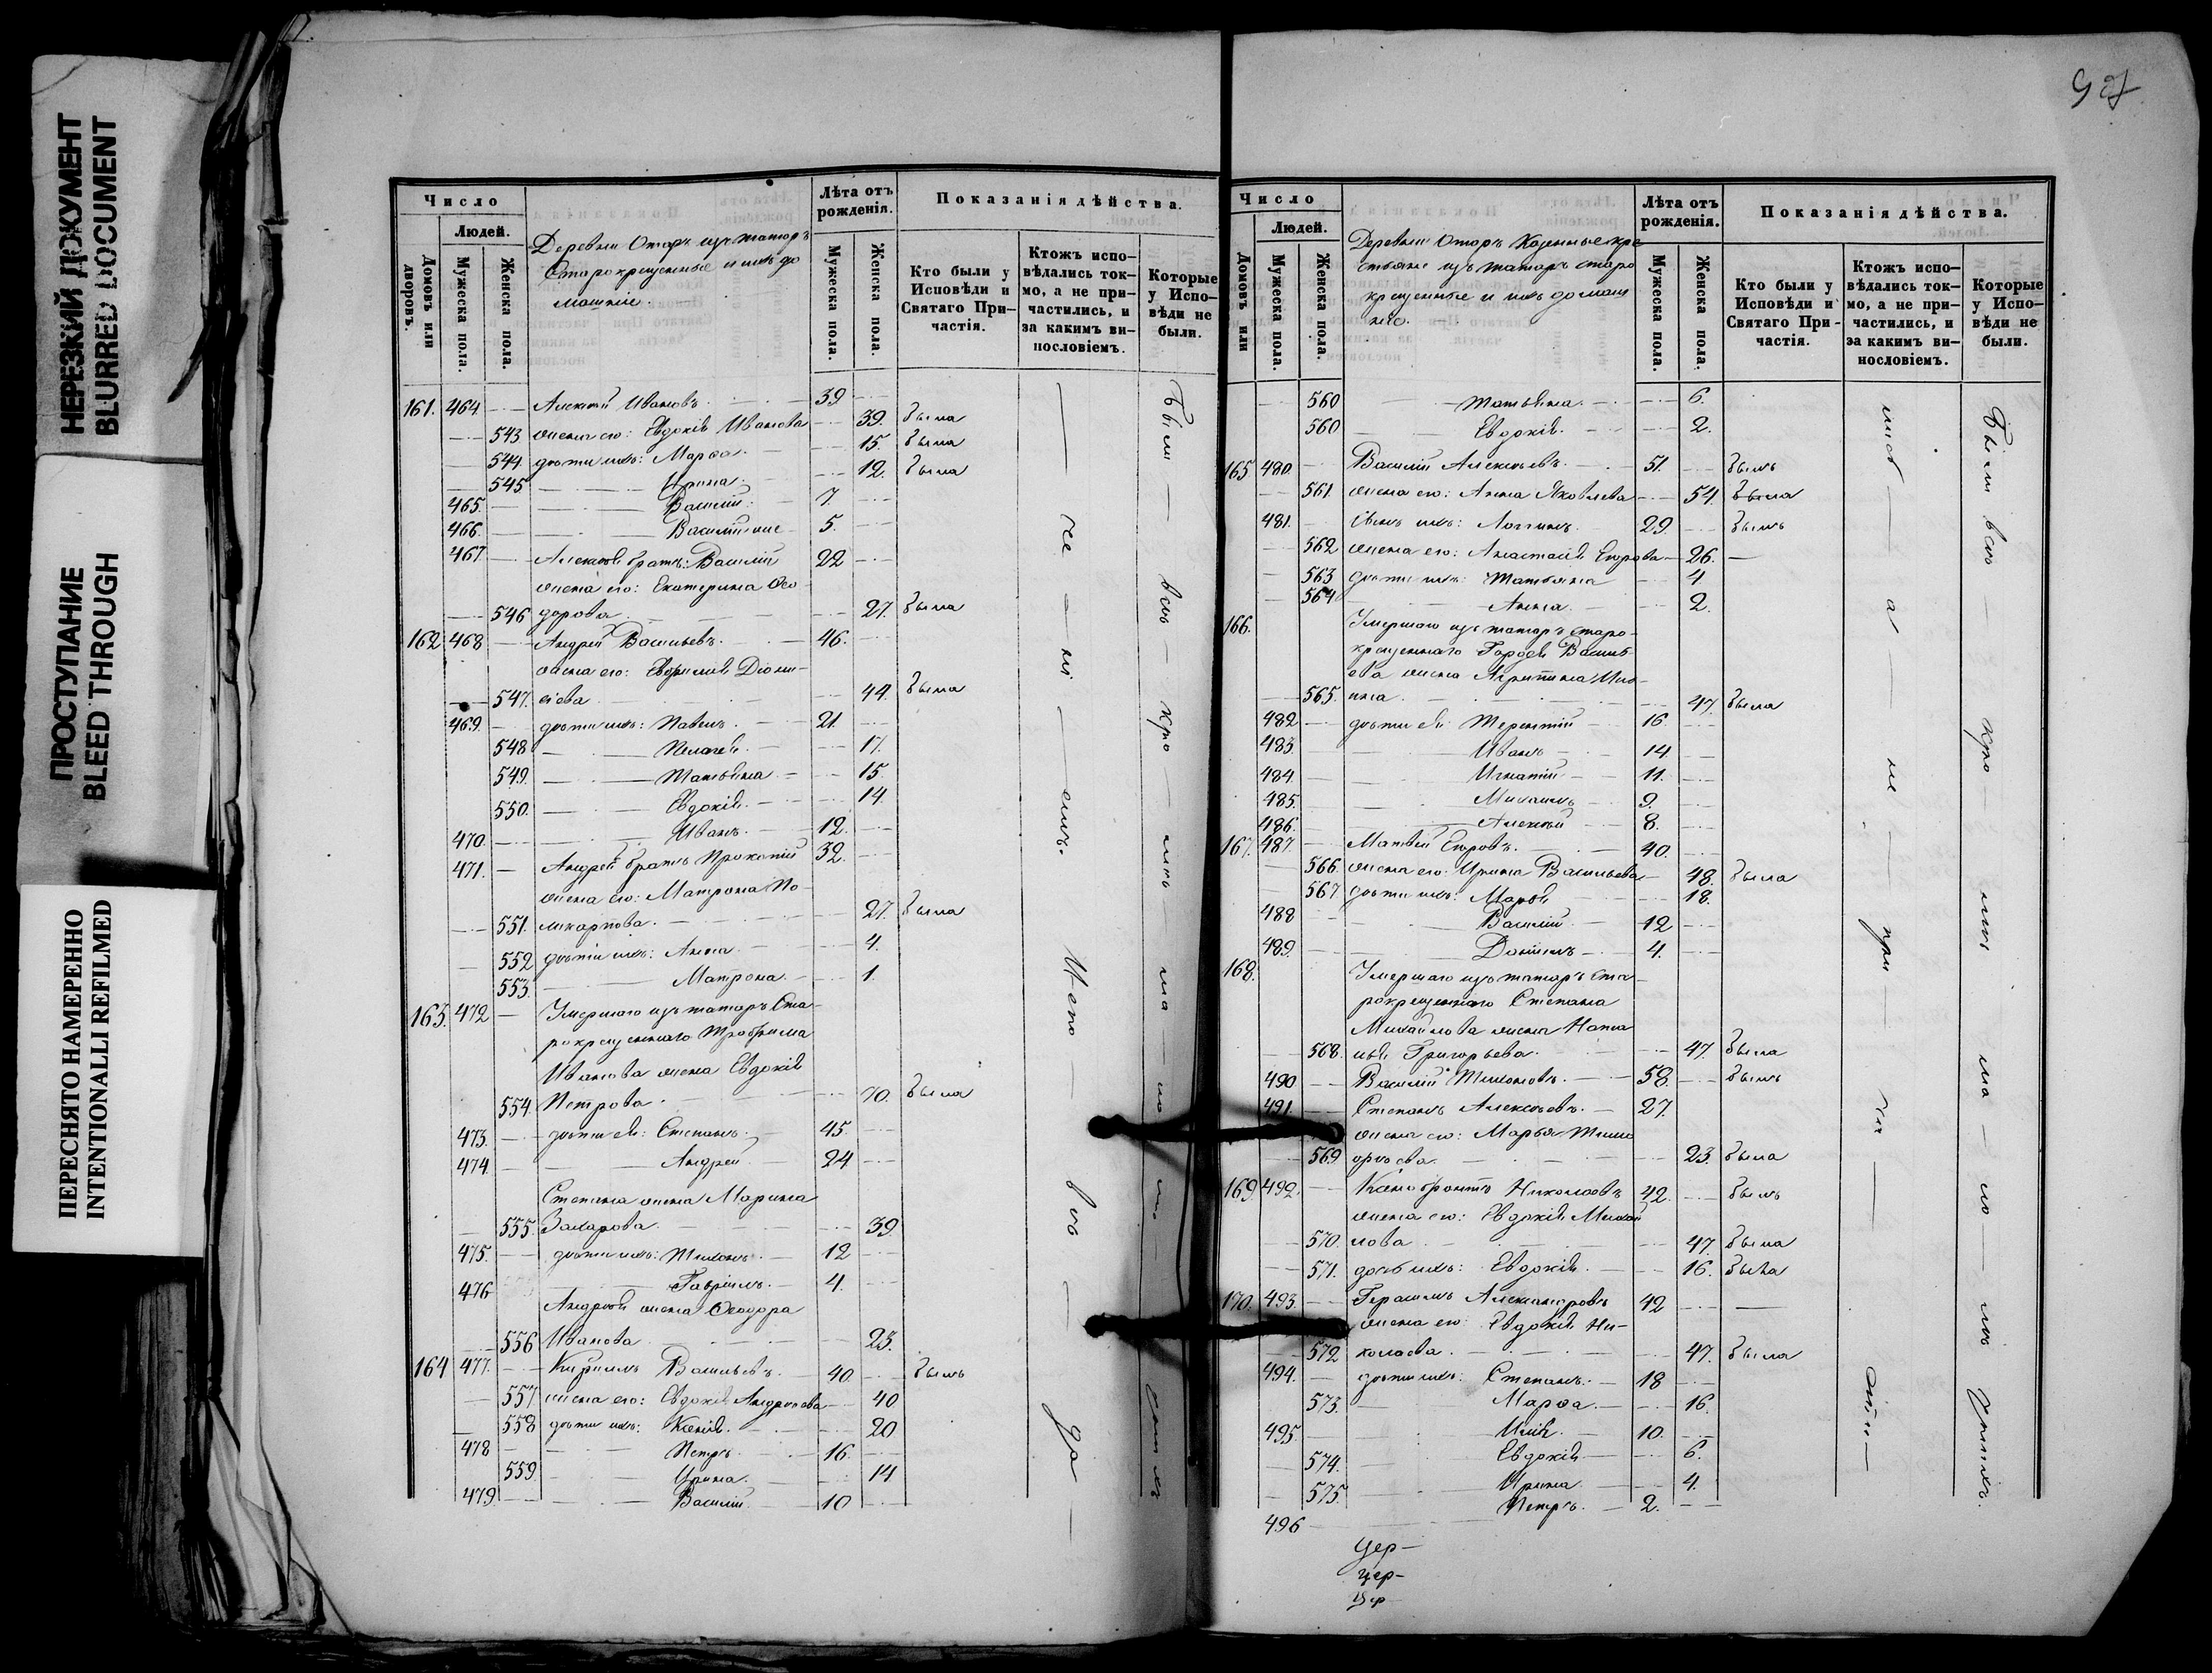 НЕРЕЗКИЙ ДОКУМЕНТ
BLURRED DOCUMENT
ПРОСТУПАНИЕ
BLEED THROUGH
ПЕРЕСНЯТО НАМЕРЕННО
INTENTIONALLI REFILMED
Число
Людей.
Домовъ или дворовъ.
Мужеска пола.
Женска пола.
Деревни Отаръ изъ татаръ
Старокрещенные и ихъ до
машніе.
Лѣта отъ рожденія.
Мужеска пола.
Женска пола.
Показанія дѣйства.
Кто были у Исповѣди и Святаго Причастія.
Ктожъ исповѣдались токмо, а не причастились, и за какимъ винословіемъ.
Которые у Исповѣди не были.
161. 464 Алексѣй Ивановъ. 39
543 жена его: Евдокія Иванова 39. была
544. дѣти ихъ: Марѳа. 15. была
545 Ирина. 12. была
465. Василій. 7
466. Василій же 5.
467 Алексѣя братъ: Василій 22
жена его: Екатерина Ѳео
546 дорова 27. была
162 468 Андрей Васильевъ. 46.
жена его: Евфимія Діони-
547. сіева 44. была
469. дѣти ихъ: Павелъ. 21.
548 Пелагея. 17.
549. Татьяна. 15.
550. Евдокія. 14.
470. Иванъ. 12.
471. Андрея братъ Прокопій 32.
жена его: Матрона По-
551. ликарпова. 27. была
552 дѣти ихъ: Анна. 4.
553. Матрона. 1.
163. 472 Умершаго изъ татаръ Ста-
рокрещеннаго Трофима
Иванова жена Евдокія
554. Петрова. 70. была
473. дѣти ея: Степанъ. 45.
474. Андрей 24
Степана жена Марина
555. Захарова. 39.
475. дѣти ихъ: Тихонъ. 12
476 Гавріилъ. 4.
Андрея жена Ѳеодора
556 Иванова 23.
164 477. Кириллъ Васильевъ. 40. былъ
557 жена его: Евдокія Андреева 40
558 дѣти ихъ: Ксенія. 20
478 Петръ. 16.
559. Ирина. 14
479. Василій 10
Число
Людей.
Домовъ или
Мужеска пола.
Женска пола.
Деревни Отаръ Казенные кре
стьяне изъ татаръ старо
крещенные и ихъ домаш
ніе.
Лѣта отъ рожденія.
Мужеска пола.
Женска пола.
Показанія дѣйства.
Кто были у Исповѣди и Святаго Причастія.
Ктожъ исповѣдались токмо, а не причастились, и за какимъ винословіемъ.
Которые у Исповѣди не были.
560 Татьяна. 6.
560 Евдокія. 2.
165 480. Василій Алексѣевъ. 51. былъ
561. жена его: Анна Яковлева 54. была
481. сынъ ихъ: Логгинъ. 29. былъ
562 жена его: Анастасія Егорова 26.
563 дѣти ихъ: Татьяна 4
564 Анна. 2.
166. Умершаго изъ татаръ старо-
крещеннаго Василь-
ева жена Агрипина
565. ина 47. была
482 дѣти ея: Терентій 16.
483. Иванъ 14.
484. Игнатій 11.
485. Михаилъ 9.
486. Алексѣй 8.
167. 487. Матвей Егоровъ. 40.
566. жена его: Ирина Васильева 48. была
567 дѣти ихъ: Марья 18.
488 Василій 12
489. Даніилъ 4.
168. Умершаго изъ татаръ ста-
рокрещеннаго Степана
Михайлова жена Ната
568. лья Григорьева. 47. была
490 Василій Тихоновъ. 58. былъ
491. Степанъ Алексѣевъ. 27.
жена его: Марья
569 23. была
169. 492. Ксенофонтъ Николаевъ 42. былъ
жена его: Евдокія Михай
570. лова 47. была
571. дочь ихъ: Евдокія. 16. была
170. 493. Герасимъ Александровъ 42
жена его: Евдокія Ни-
572 колаева. 47. была
494. дѣти ихъ: Степанъ. 18
573. Марѳа. 16.
495. Илія. 10.
574. Евдокія 6.
575. Ирина 4.
496 Петръ. 2.
Цер-
Цер-
Цер-